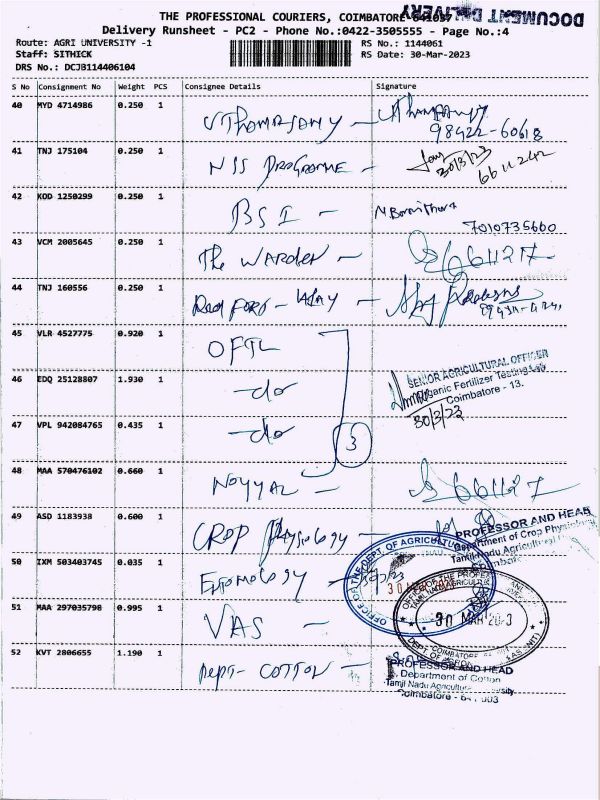 THE PROFESSIONAL COURIERS, COIMBATORE 641037
DOCUMENT DELIVERY
Delivery Runsheet - PC2 - Phone No.:0422-3505555 - Page No.:4
Route: AGRI UNIVERSITY -1 RS No.: 1144061
Staff: SITHICK RS Date: 30-Mar-2023
DRS No.: DCJB114406104
S No Consignment No Weight PCS Consignee Details Signature
40 MYD 4714986 0.250 1
98422-60618
41 TNJ 175104 0.250 1 NSS PROGRAMME - 30/3/23
6611242
42 KOD 1250299 0.250 1 BSI -
7010735660
43 VCM 2005645 0.250 1 The WARDEN - 6611217
44 TNJ 160556 0.250 1
45 VLR 4527775 0.920 1 OFTL
SENIOR AGRICULTURAL OFFICER
46 EDQ 25128807 1.930 1 -do Organic Fertilizer Testing Lab
Coimbatore - 13.
30/3/23
47 VPL 942084765 0.435 1 -do
3
48 MAA 570476102 0.660 1 NOYYAL - 661127
49 ASD 1183938 0.600 1 CROP Physiology -
PROFESSOR AND HEAD
Department of Crop Physiology
Tamil Nadu Agricultural
Coimbatore
50 IXM 503403745 0.035 1 Entomology
OFFICE OF THE DEPT OF AGRICULTURAL
30 MAR 2023
51 MAA 297035798 0.995 1 VAS -
OFFICE OF THE PROFESSOR
TAMIL NADU AGRICULTURAL
30 MAR 2023
COIMBATORE
52 KVT 2806655 1.190 1 Dept- COTTON -
PROFESSOR AND HEAD
Department of Cotton
Tamil Nadu Agricultural University
Coimbatore - 641 003